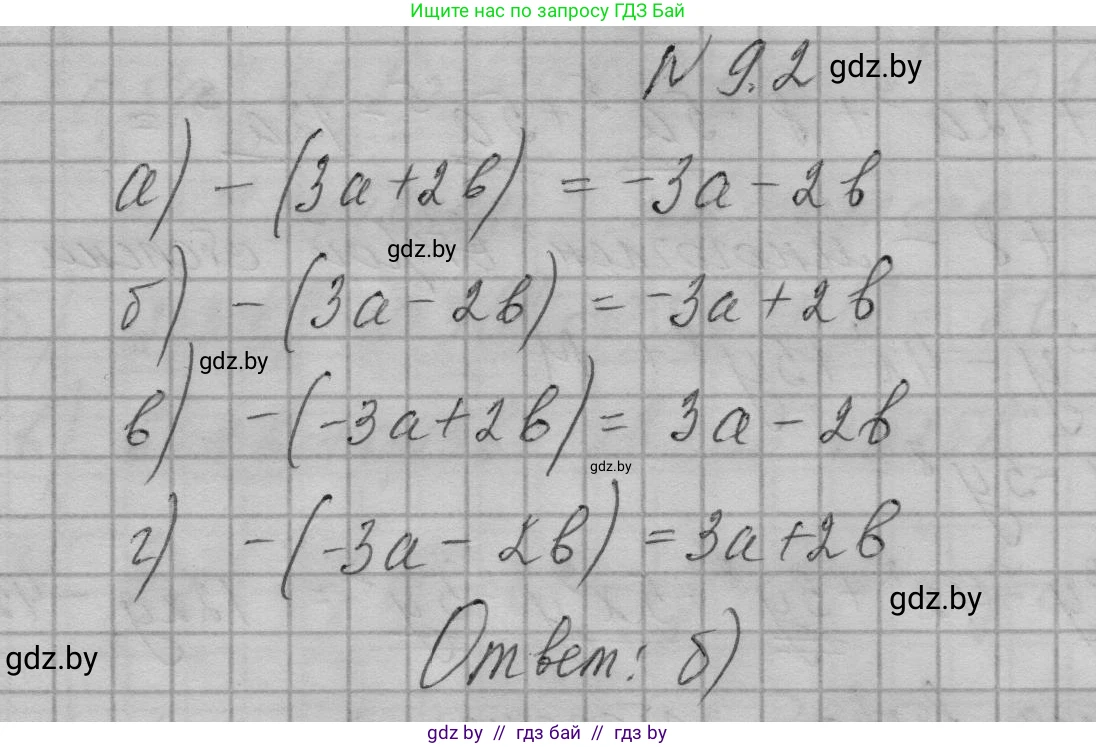 Ищите нас по запросу ГДЗ Бай
N 9.2 gdz.by
а) - (3a + 2b) = -3a - 2b
gdz.by
б) - (3a - 2b) = -3a + 2b
gdz.by
в) - (-3a + 2b) = 3a - 2b
gdz.by
г) - (-3a - 2b) = 3a + 2b
gdz.by
Ответ: б)
gdz.by
gdz.by // гдз бай // гдз by